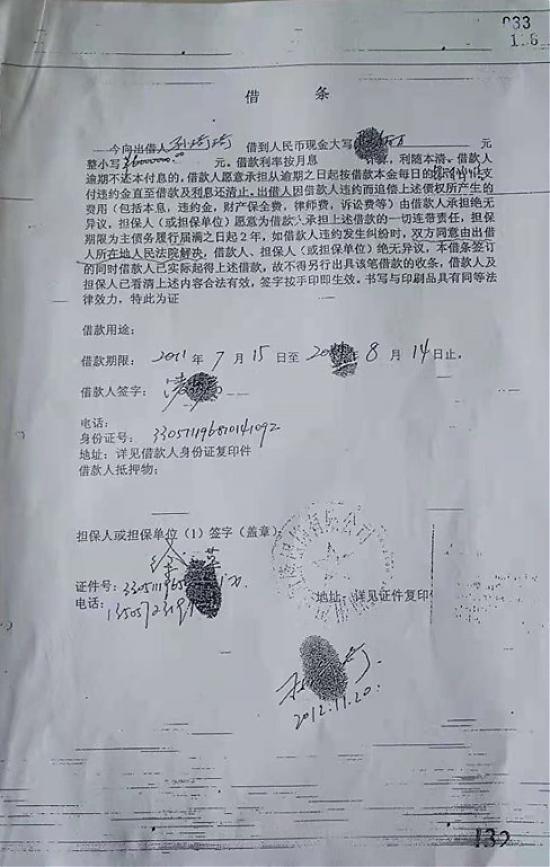 033
借 条
今向出借人 借到人民币现金大写 元
整小写 元。借款利率按月息 计算，利随本清。借款人
逾期不还本付息的，借款人愿意承担从逾期之日起按借款本金每日的 支
付违约金直至借款及利息还清止。出借人因借款人违约而追偿上述债权所产生的
费用（包括本息，违约金，财产保全费，律师费，诉讼费等）由借款人承担绝无
异议，担保人（或担保单位）愿意为借款人承担上述借款的一切连带责任，担保
期限为主债务履行届满之日起2年，如借款人违约发生纠纷时，双方同意由出借
人所在地人民法院解决，借款人、担保人（或担保单位）绝无异议，本借条签订
的同时借款人已实际起得上述借款，故不得另行出具该笔借款的收条，借款人及
担保人已看清上述内容合法有效，签字按手印即生效。书写与印刷品具有同等法
律效力，特此为证
借款用途：
借款期限： 2011 年 7 月 15 日至 年 8 月 14 日止.
借款人签字：
电话：
身份证号：
地址：详见借款人身份证复印件
借款人抵押物：
担保人或担保单位（1）签字（盖章）
证件号：
电话：
地址：详见证件复印
2012.11.20.
132